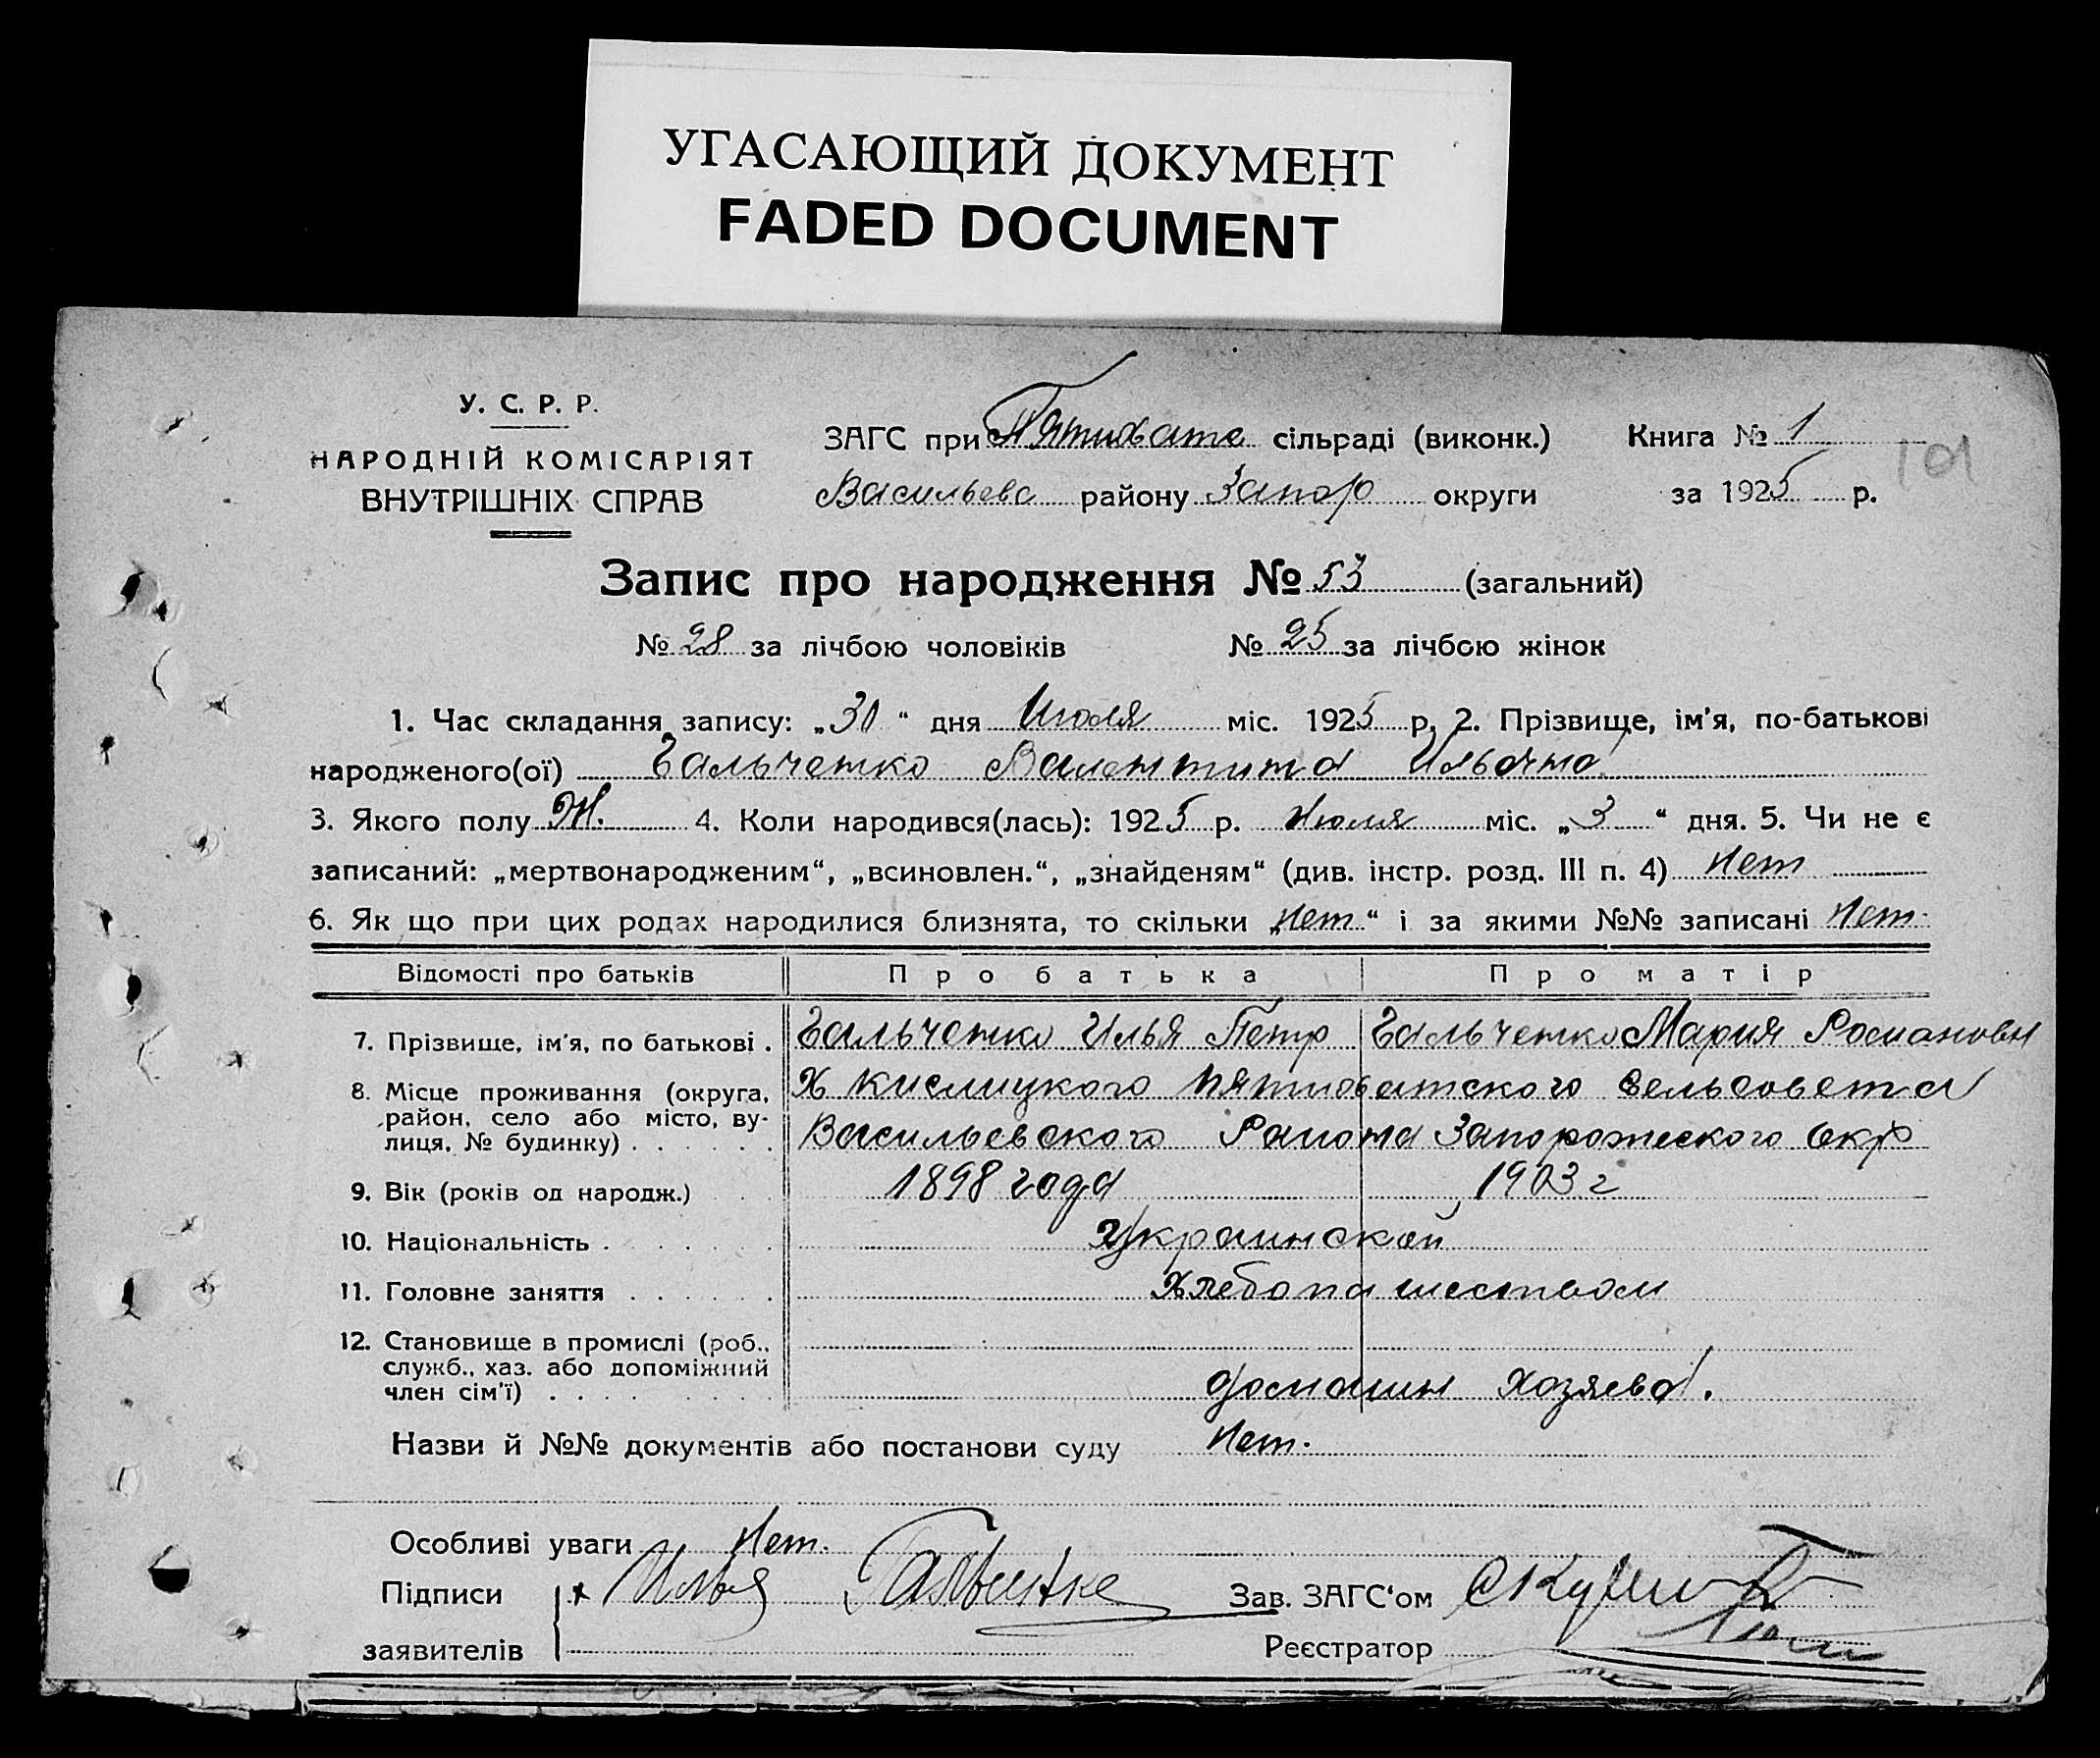 УГАСАЮЩИЙ ДОКУМЕНТ
FADED DOCUMENT
У. С. Р. Р.
НАРОДНІЙ КОМІСАРІЯТ
ВНУТРІШНІХ СПРАВ
ЗАГС при Пятихатс сільраді (виконк.) Книга № 1
101
Васильевс району Запор округи за 1925 р.
Запис про народження № 53 (загальний)
№ 28 за лічбою чоловіків № 25 за лічбою жінок
1. Час складання запису: „30“ дня Июля міс. 1925 р. 2. Прізвище, ім'я, по-батькові
народженого(ої) Гальченко Валентина Ильична
3. Якого полу Ж. 4. Коли народився(лась): 1925 р. Июля міс. „3“ дня. 5. Чи не є
записаний: „мертвонародженим“, „всиновлен.“, „знайденям“ (див. інстр. розд. III п. 4) Нет
6. Як що при цих родах народилися близнята, то скільки „Нет“ і за якими №№ записані Нет
Відомості про батьків Про батька Про матір
7. Прізвище, ім'я, по батькові . Гальченко Илья Петр Гальченко Мария Романовн
8. Місце проживання (округа, Х Кислицкого Пятихатского Сельсовета
район, село або місто, ву-
лиця, № будинку) . . . . . . Васильевского Раиона Запорожского Окр
9. Вік (років од народж.) 1898 года 1903 г
10. Національність . Украинской
11. Головне заняття . . . . . . Хлебопашеством
12. Становище в промислі (роб.,
служб., хаз. або допоміжний
член сім'ї) . . . . домашн хозяева.
Назви й №№ документів або постанови суду Нет.
Особливі уваги Нет.
Підписи Илья Гальченке Зав. ЗАГС'ом
заявителів Реєстратор